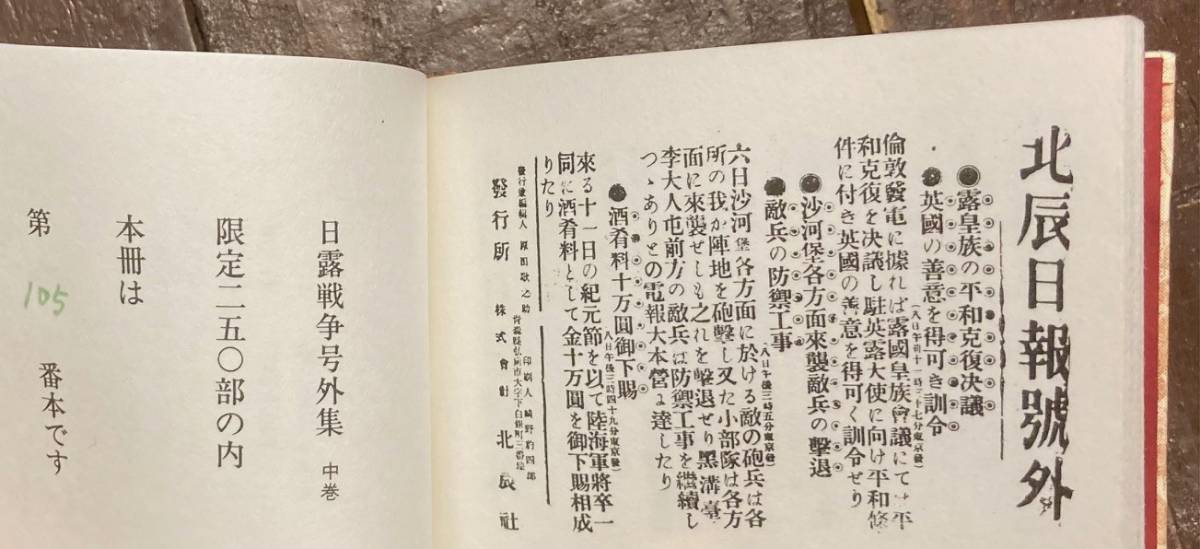 北辰日報號外
●露皇族の平和克復决議
●英國の善意を得可き訓令
(八日午前十一時三十七分東京發)
倫敦發電に據れば露國皇族會議にては平
和克復を决議し駐英露大使に向け平和條
件に付き英國の善意を得可く訓令せり
●沙河堡各方面來襲敵兵の擊退
●敵兵の防禦工事
(八日午後三時五分東京發)
六日沙河堡各方面に於ける敵の砲兵は各
所の我が陣地を砲擊し又た小部隊は各方
面に來襲せしも之れを擊退せり黑溝臺
李大人屯前方の敵兵は防禦工事を繼續し
つゝありとの電報大本營に達したり
●酒肴料十万圓御下賜
(八日午後三時四十九分東京發)
來る十一日の紀元節を以て陸海軍將卒一
同に酒肴料として金十万圓を御下賜相成
りたり
發行兼編輯人 原田歌之助 印刷人 崎野豹四郎
青森縣弘前市大字下白銀町三番地
發行所 株式會社 北辰社
日露戦争号外集 中巻
限定二五〇部の内
本冊は
第 105 番本です